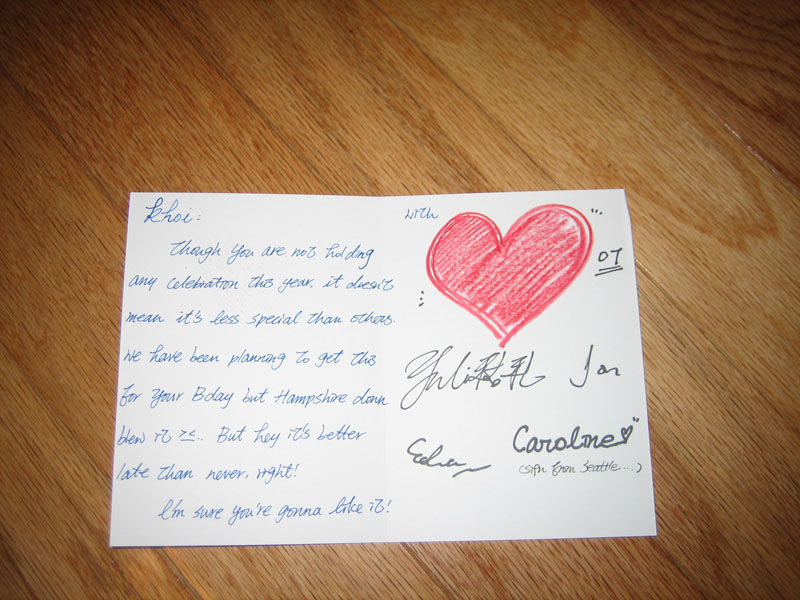 Khoi:
Though you are not holding
any celebration this year, it doesn't
mean it's less special than others.
We have been planning to get this
for your Bday but Hampshire damn
blew it >.<.. But hey it's better
late than never, right!
I'm sure you're gonna like it!
with
07
Yuli
Jon
Caroline
(sign from Seattle...)